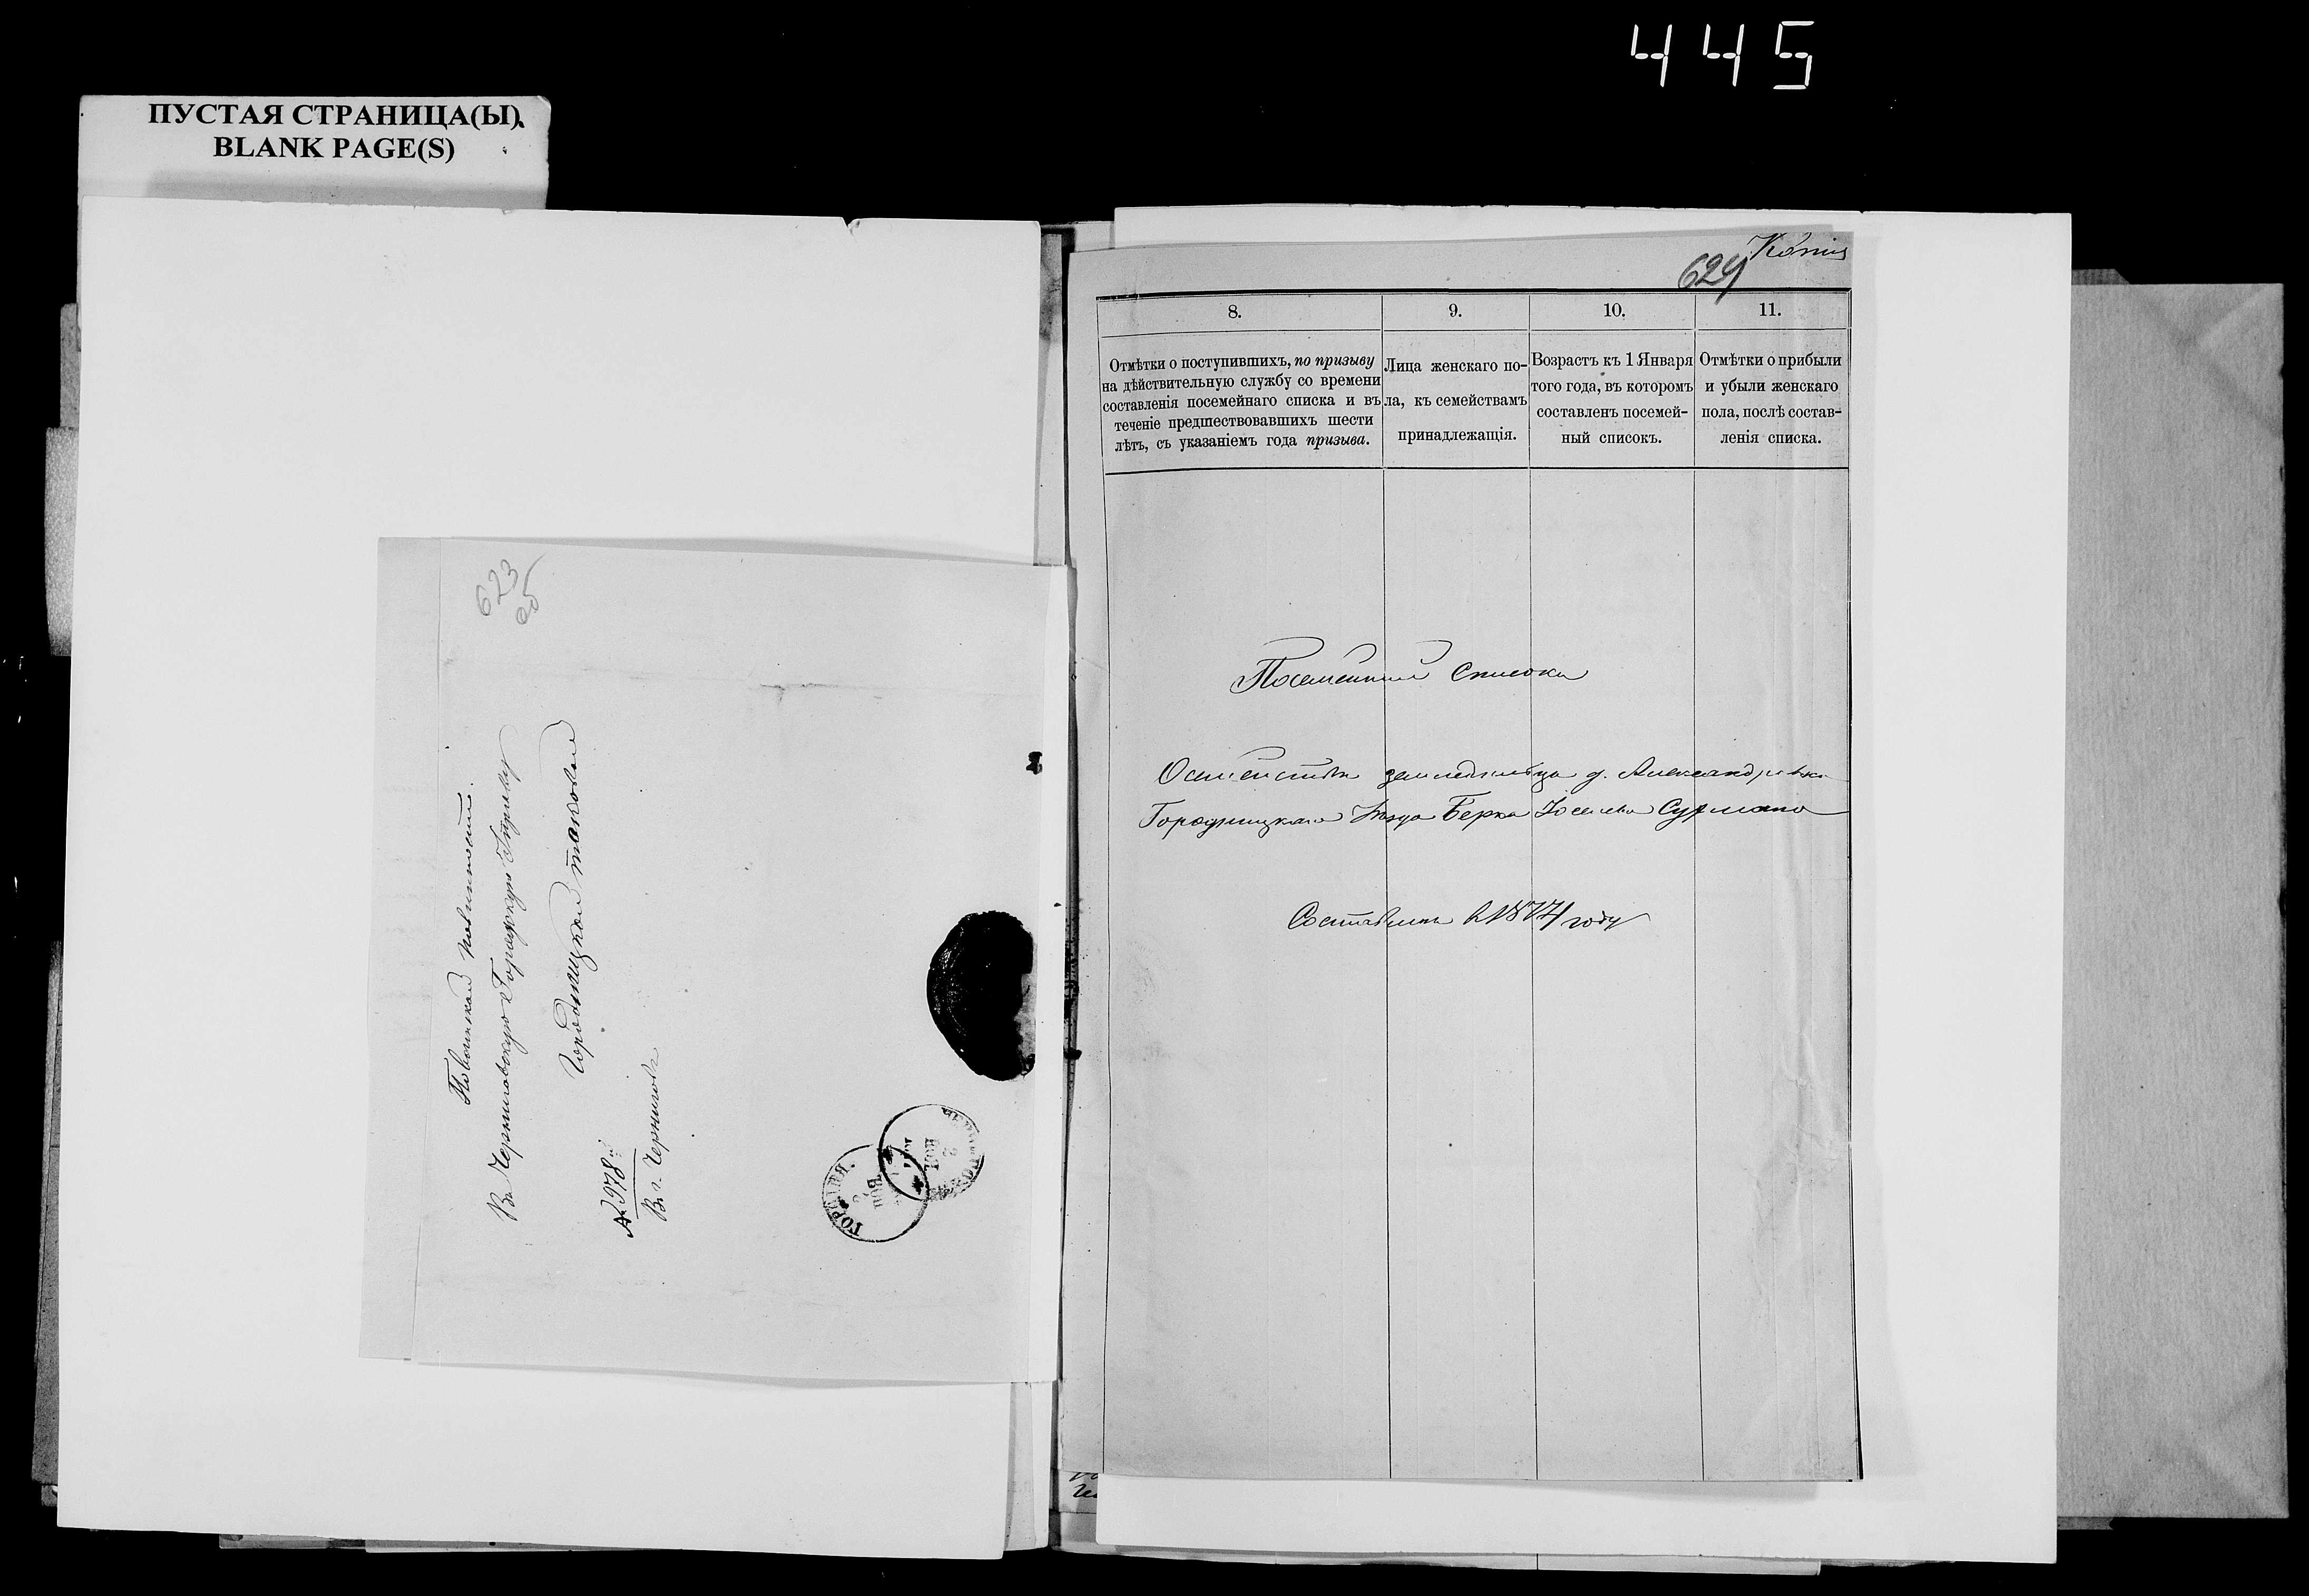 445
ПУСТАЯ СТРАНИЦА(Ы)
BLANK PAGE(S)
623
об
По воинской повинности.
Въ Черниговскую Городскую Управу
Городницкой таковой
№ 2978
Въ г. Черниговъ
Копія
624
8.
9.
10.
11.
Отмѣтки о поступившихъ, по призыву
на дѣйствительную службу со времени
составленія посемейнаго списка и въ
теченіе предшествовавшихъ шести
лѣтъ, съ указаніемъ года призыва.
Лица женскаго по-
ла, къ семействамъ
принадлежащія.
Возрастъ къ 1 Января
того года, въ которомъ
составленъ посемей-
ный списокъ.
Отмѣтки о прибыли
и убыли женскаго
пола, послѣ состав-
ленія списка.
Посемейный списокъ
О семействѣ земледѣльца д. Александровки
Городницкаго уѣзда Берка Іоселева
Составленъ въ 1874 году